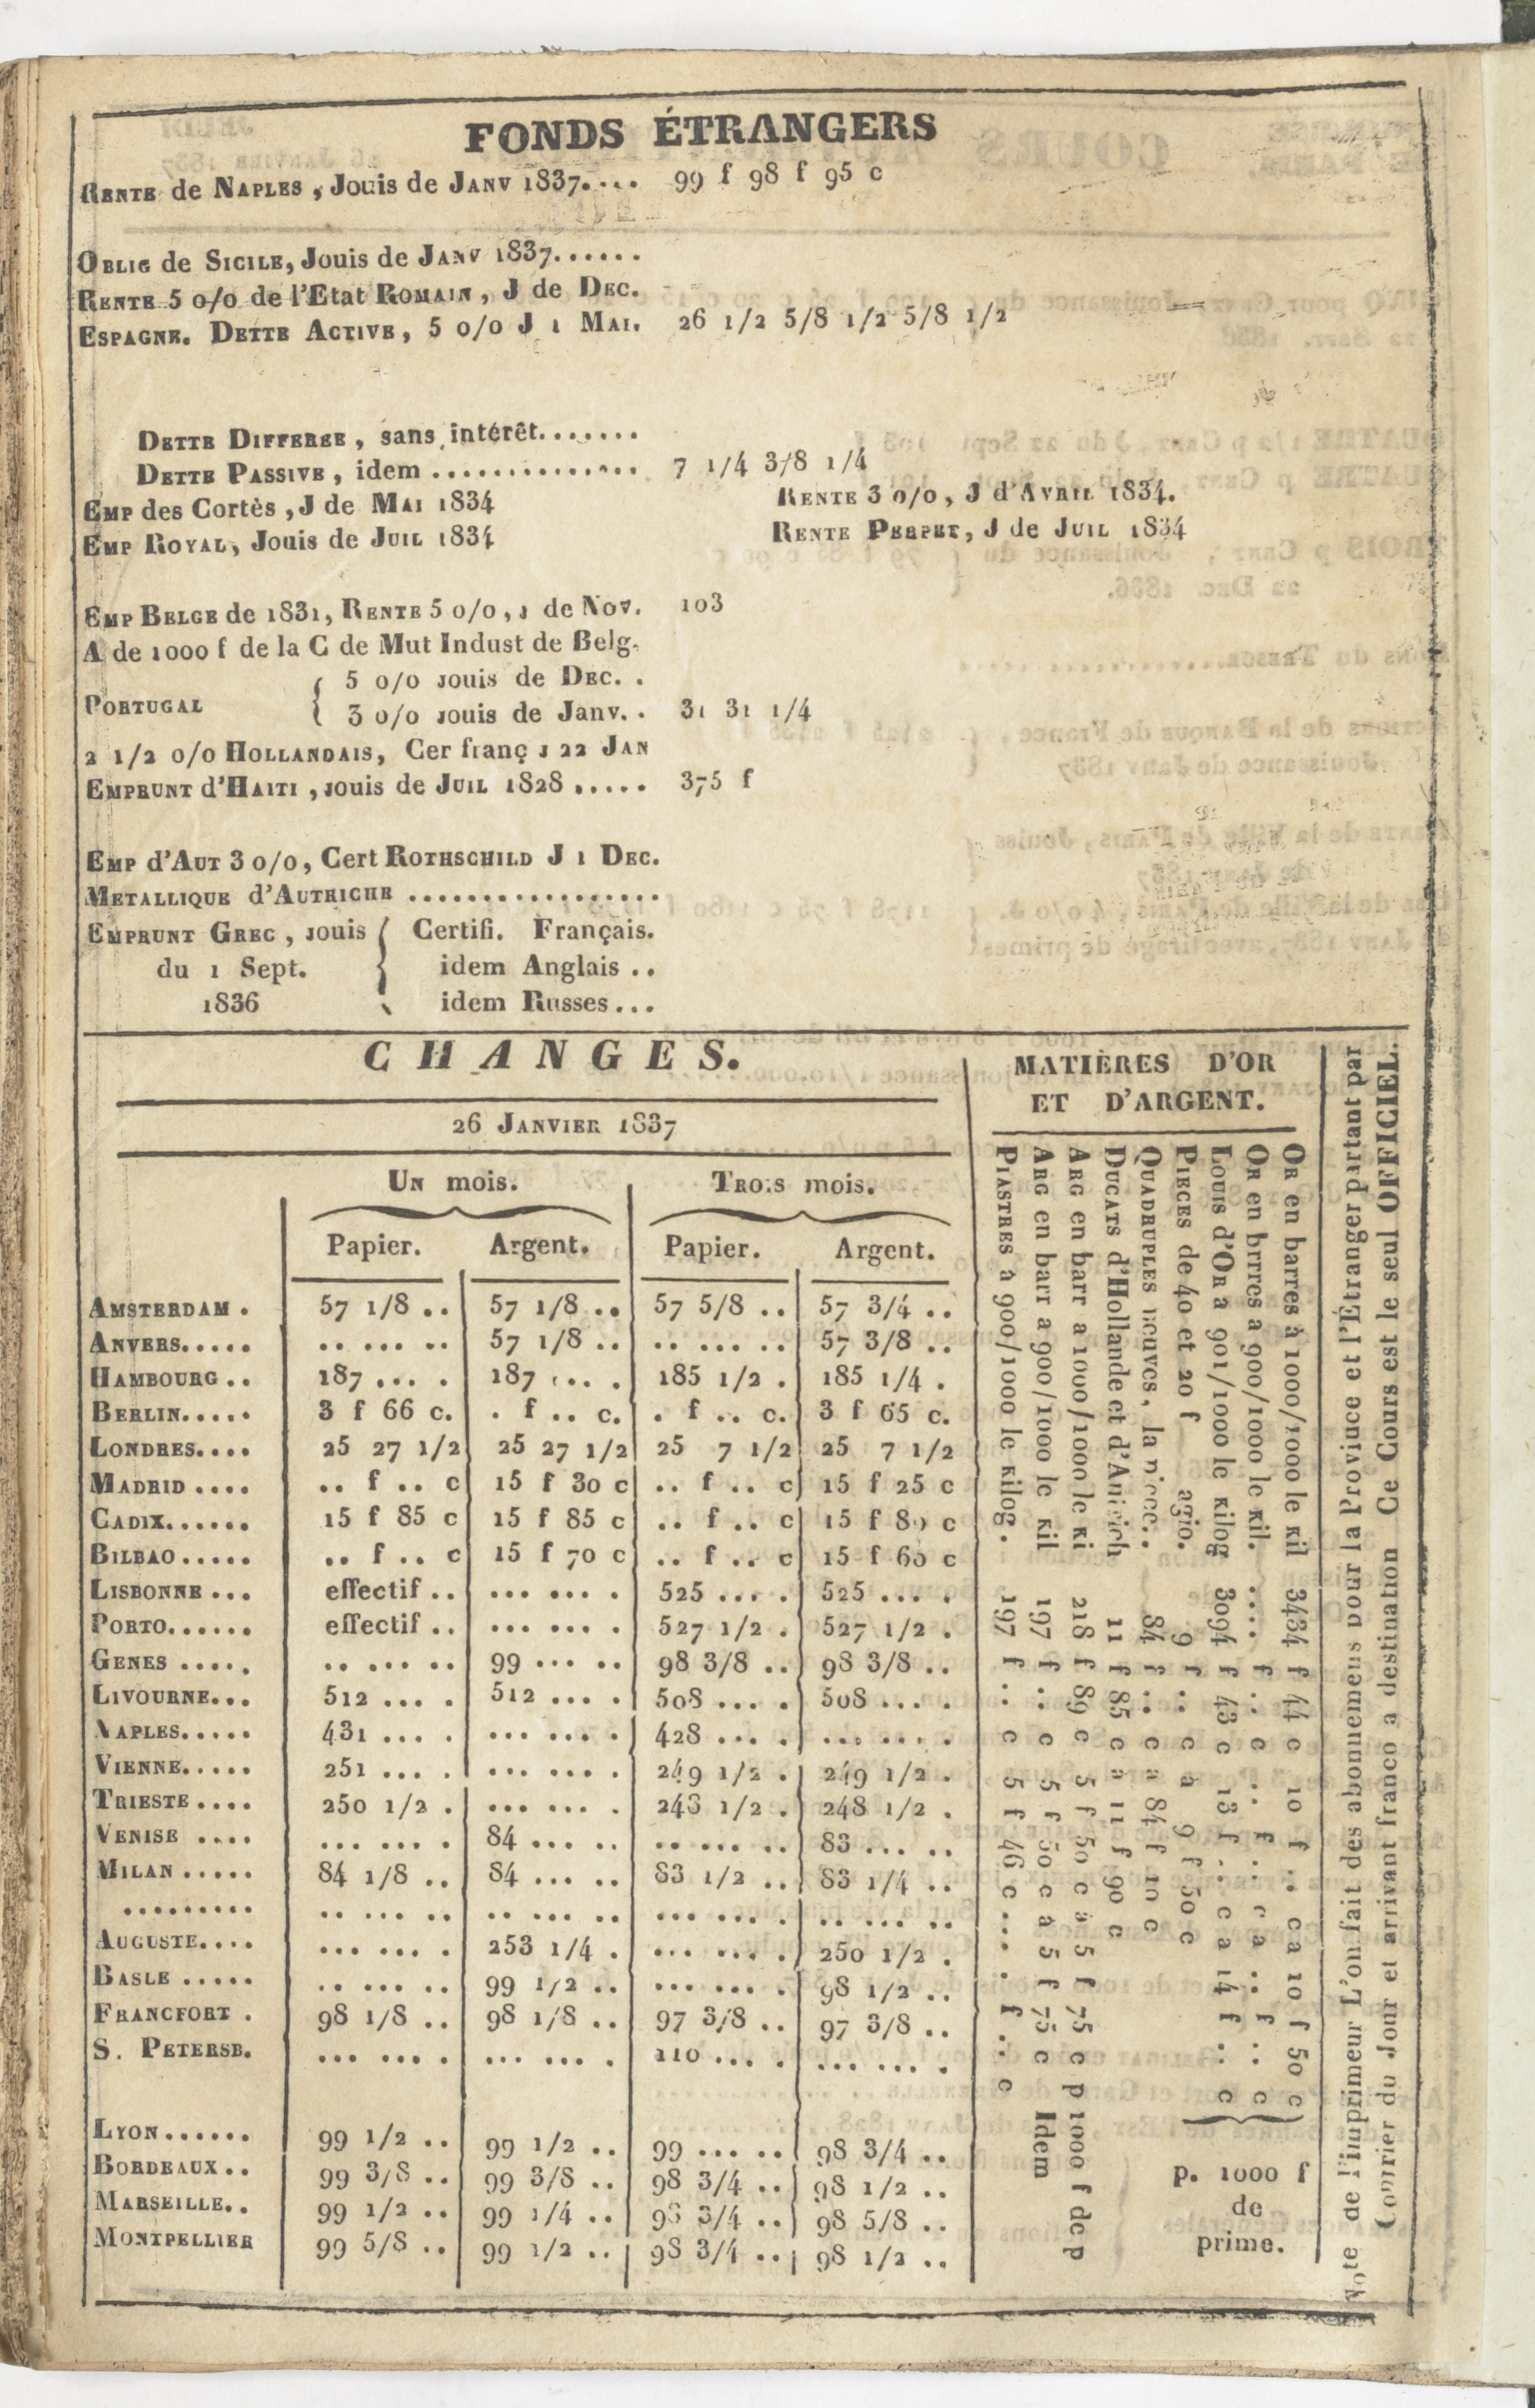 FONDS ÉTRANGERS
RENTE de NAPLES, Jouis de JANV 1837.... 99 f 98 f 95 c
OBLIG de SICILE, Jouis de JANV 1837......
RENTE 5 o/o de l'Etat ROMAIN, J de DEC.
ESPAGNE. DETTE ACTIVE, 5 o/o J 1 MAI. 26 1/2 5/8 1/2 5/8 1/2
DETTE DIFFEREE, sans intérêt.......
DETTE PASSIVE, idem .............. 7 1/4 3/8 1/4
EMP des Cortès, J de MAI 1834 RENTE 3 o/o, J d'AVRIL 1834.
EMP ROYAL, Jouis de JUIL 1834 RENTE PERPET, J de JUIL 1834
EMP BELGE de 1831, RENTE 5 o/o, J de Nov. 103
A de 1000 f de la C de Mut Indust de Belg.
PORTUGAL { 5 o/o Jouis de DEC. .
3 o/o Jouis de Janv. . 31 31 1/4
2 1/2 o/o HOLLANDAIS, Cer franç J 22 JAN
EMPRUNT d'HAITI, Jouis de JUIL 1828 ..... 375 f
EMP d'AUT 3 o/o, Cert ROTHSCHILD J 1 DEC.
METALLIQUE d'AUTRICHE .................
EMPRUNT GREC, Jouis { Certifi. Français.
du 1 Sept. idem Anglais ..
1836 idem Russes...
CHANGES.
26 JANVIER 1837
UN mois. TROIS mois.
Papier. Argent. Papier. Argent.
AMSTERDAM . 57 1/8 .. 57 1/8 .. 57 5/8 .. 57 3/4 ..
ANVERS..... .. ... .. 57 1/8 .. .. ... .. 57 3/8 ..
HAMBOURG .. 187 ... . 187 ... . 185 1/2 . 185 1/4 .
BERLIN..... 3 f 66 c. . f .. c. . f .. c. 3 f 65 c.
LONDRES.... 25 27 1/2 25 27 1/2 25 7 1/2 25 7 1/2
MADRID .... .. f .. c 15 f 30 c .. f .. c 15 f 25 c
CADIX...... 15 f 85 c 15 f 85 c .. f .. c 15 f 80 c
BILBAO ..... .. f .. c 15 f 70 c .. f .. c 15 f 60 c
LISBONNE ... effectif .. ... ... . 525 ... . 525 ... .
PORTO...... effectif .. ... ... . 527 1/2 . 527 1/2 .
GENES ..... .. ... .. 99 ... .. 98 3/8 .. 98 3/8 ..
LIVOURNE... 512 ... . 512 ... . 508 ... . 508 ... .
NAPLES..... 431 ... . ... ... . 428 ... . ... ... .
VIENNE..... 251 ... . ... ... . 249 1/2 . 249 1/2 .
TRIESTE .... 250 1/2 . ... ... . 243 1/2 . 248 1/2 .
VENISE .... ... ... . 84 ... .. .. ... .. 83 ... ..
MILAN ..... 84 1/8 .. 84 ... .. 83 1/2 .. 83 1/4 ..
......... .. ... .. .. ... .. ... ... . .. ... ..
AUGUSTE.... ... ... . 253 1/4 . ... ... . 250 1/2 .
BASLE ..... .. ... .. 99 1/2 .. ... ... . 98 1/2 ..
FRANCFORT . 98 1/8 .. 98 1/8 .. 97 3/8 .. 97 3/8 ..
S. PETERSB. ... ... . ... ... . 110 ... . ... ... .
LYON...... 99 1/2 .. 99 1/2 .. 99 ... .. 98 3/4 ..
BORDEAUX .. 99 3/8 .. 99 3/8 .. 98 3/4 .. 98 1/2 ..
MARSEILLE.. 99 1/2 .. 99 1/4 .. 98 3/4 .. 98 5/8 ..
MONTPELLIER 99 5/8 .. 99 1/2 .. 98 3/4 .. 98 1/2 ..
MATIÈRES D'OR
ET D'ARGENT.
OR en barres à 1000/1000 le kil 3434 f 44 c 10 f .. c a 10 f 50 c
OR en brrres a 900/1000 le kil. .... f .. c .. f .. c a .. f .. c
LOUIS d'OR a 901/1000 le kilog 3094 f 43 c 13 f .. c a 14 f .. c
PIECES de 40 et 20 f agio. 9 f .. c à 9 f 50 c
QUADRUPLES neuves, la piece.. 84 f .. c a 84 f 10 c
DUCATS d'Hollande et d'Autrich 11 f 85 c a 11 f 90 c
ARG en barr a 1000/1000 le ki 218 f 89 c 5 f 50 c à 5 f 75 c p 1000 f de p
ARG en barr a 900/1000 le kil 197 f .. c 5 f 50 c a 5 f 75 c Idem
PIASTRES à 900/1000 le kilog. 197 f .. c 5 f 46 c ... . f .. c
p. 1000 f
de
prime.
Note de l'imprimeur L'on fait des abonnemens pour la Proviuce et l'Étranger partant par
Courrier du Jour et arrivant franco a destination Ce Cours est le seul OFFICIEL.